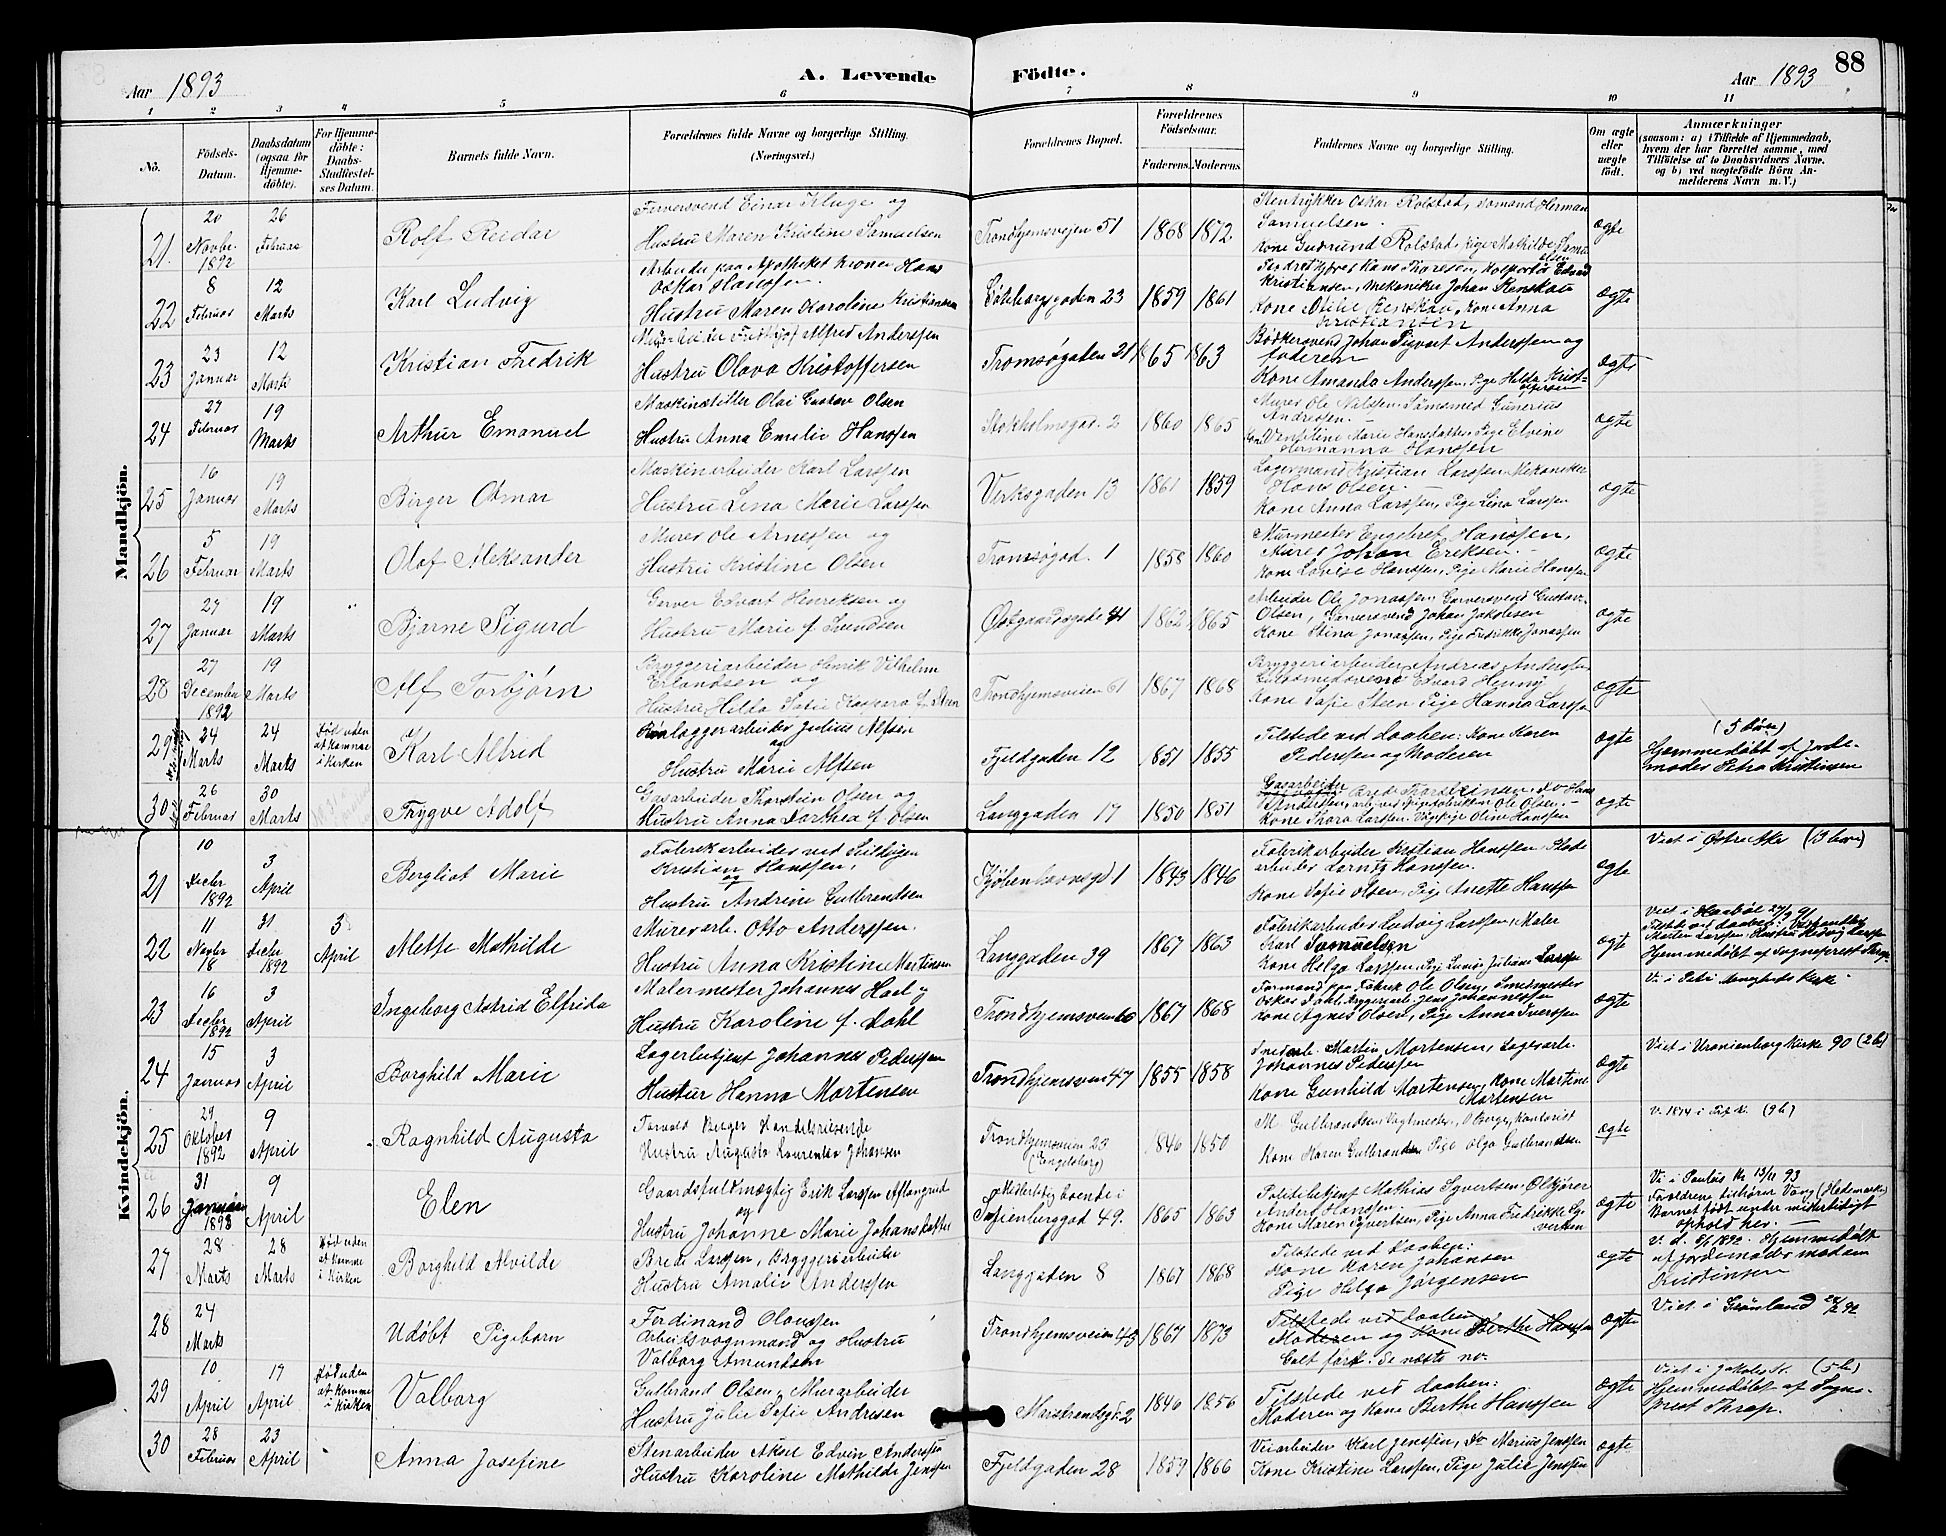 88
Aar 1893
A. Levende Födte.
Aar 1893
1 2 3 4 5 6 7 8 9 10 11
No.
Födsels-Datum.
Daabsdatum (ogsaa for Hjemmedöbte).
For Hjemmedöbte: Daabs-Stadfæstelses Datum.
Barnets fulde Navn.
Forældrenes fulde Navne og borgerlige Stilling. (Næringsvei.)
Forældrenes Bopæl.
Forældrenes Födselsaar.
Faderens. Moderens.
Faddernes Navne og borgerlige Stilling.
Om ægte eller uægte födt.
Anmærkninger
(saasom: a) i Tilfælde af Hjemmedaab, hvem der har forrettet samme, med Tilföielse af to Daabsvidners Navne. og b) ved uægtefödte Börn Anmelderens Navn m. V.)
Mandkjön.
21. 20 Novbr. 1892 26 Februar Rolf Reidar
Farversvend Einar Kluge og
Hustru Maren Kristine Samuelsen
Trondhjemsvejen 51 1868 1872.
Stentrykker Oskar Rolstad, Sömand Herman
Samuelsen.
Kone Gudrund Rolstad, Pige Mathilde
ægte
22 8 Februar 12 Marts Karl Ludvig
Arbeider paa Apotheket Kronen Hans
Oskar Hanssen.
Hustru Maren Karoline Kristiansen
Göteborggaden 23 1859 1861
Hans Thoresen, Kolportör Edvard
Kristiansen, Mekaniker Johan Renskau
Kone Otilie Renskau, Kone Anna
Kristiansen
ægte
23 23 Januar 12 Marts Kristian Fredrik
Alfred Anderssen
Hustru Olava Kristoffersen
Tromsøgaden 21 1865 1863
Bödkersvend Johan Sigvart Anderssen og
faderen
Kone Amanda Anderssen, Pige Hilda Kristoffersen
ægte
24 27 Februar 19 Marts Arthur Emanuel
Maskinstiller Olai Gustav Olsen
Hustru Anna Emilie Hanssen
Stokholmsgad. 2 1860 1865
Murer Ole Nilssen. Sömsmed Gunerius
Andresen.
Marie Hansdatter, Pige Elvine
Hermanna Hanssen
ægte
25 16 Januar 19 Marts Birger Otmar
Maskinarbeider Karl Larssen
Hustru Lina Marie Larssen
Verksgaden 13 1861 1859
Lagermand Kristian Larssen, Mekaniker
Hans Olsen.
Kone Anna Larssen, Pige Lina Larssen
ægte
26 5 Februar 19 Marts Olaf Aleksander
Murer Ole Arnessen og
Hustru Kristine Olsen
Tromsøgad. 1 1858 1860
Murmester Engebret Hanssen,
Murer Johan Eriksen.
Kone Lovise Hanssen, Pige Marie Hanssen
ægte
27 27 Januar 19 Marts Bjarne Sigurd
Garver Edvart Henriksen og
Hustru Marie f. Svendsen
Østgaardsgade 41 1862 1865
Arbeider Ole Jonassen, Garversvend Gustav
Olsen, Garversvend Johan Jakobsen
Kone Stina Jonassen, Pige Fredrikke Jonassen
ægte
28 27 December 1892 19 Marts Alf Torbjørn
Bryggeriarbeider Henrik Vilhelm
Erlandsen og
Hustru Hilda Sofie f. Steen
Trondhjemsveien 61 1867 1868
Bryggeriarbeider Andreas Anderssen
Guldsmedsvend Edvard Henny
Kone Sofie Steen Pige Hanna Larssen
ægte
29 24 Marts 24 Marts Död uden at komme i Kirken Karl Alfrid
Rörlæggerarbeider Julius Alfsen
og
Hustru Marie Alfsen
Fjeldgaden 12 1851 1855
Tilstede ved daaben: Kone Karen
Pederssen og Moderen
ægte
(5 börn)
Hjemmedöbt af Jordemoder Petra Kristinsen
30 26 Februar 30 Marts Trygve Adolf
Gasarbeider Thorstein Olsen og
Hustru Anna Dorthea f. Olsen
Langgaden 17 1850 1851
Gasarbeider
Anderssen, Ole Olsen.
Kone Thora Larssen. Pige Oline Hanssen
ægte
Kvindekjön.
21 10 Decbr 1892 3 April Bergliot Marie
Fabrikarbeider ved Seildugen
Kristian Hanssen,
og
Hustru Andrine Gulbrandsen
Kjöbenhavnsgd 1 1843 1846
Fabrikarbeider Kristian Hanssen
arbeider Hanssen.
Kone Sofie Olsen, Pige Anette Hanssen
ægte
Viet i Østre Aker (13 börn)
22 11 Novbr 18 31 Decbr 1892 3 April Alette Mathilde
Murerarb. Otto Anderssen.
Hustru Anna Kristine Martinsen
Langgaden 39 1867 1863
Fabrikarbeider Ludvig Larssen, Maler
Karl
Kone Helga Larssen, Pige Juliane Larssen
ægte
Viet i Haaböl 27/9 91
Tilstede ved daaben:
Hjemmedöbt af Sogneprest Thrap
23 16 Decbr 1892 3 April Ingeborg Astrid Elfrida
Malermester Johannes
Hustru Karoline f. Dahl
Trondhjemsveien 60 1867 1868
Formand paa Fabrik Ole Olsen, Smedmester
Oskar Dahl, Jens Johannessen
Kone Agnes Olsen, Pige Anna Iverssen
ægte
Vi. i Petri Menigheds Kirke
24 15 Januar 3 April Borghild Marie
Lagerbetjent Johannes Pederssen
Hustur Hanna Mortensen
Trondhjemsveien 47 1855 1858
Snedarb. Martin Mortensen, Lagerarb.
Johannes Pederssen
Kone Gunhild Mortensen, Kone Martine
Mortensen
ægte
Viet i Uranienborg Kirke 90 (2 b)
25 29 Oktober 1892 9 April Ragnhild Augusta
Torvald Berger Handelsreisende
Hustru Augusta Laurentze Johansen
Trondhjemsveien 23
(Engelsborg)
1846 1850
M. Gulbrandsen, Vagtmester, O. Berge, Kontorist
Kone Maren Gulbrandsen Pige Olga Gulbrandsen
ægte
V. 1874 i (9 b)
26 31 Januar 1893 9 April Elen
Gaardsfuldmægtig Erik Larssen Aflangrud
og
Hustru Johanne Marie Johansdatter
Midlertidig boende i
Sofienberggad 49. 1865 1863
Politibetjent Mathias Syvertsen,
Anders Hanssen.
Kone Maren Syvertsen, Pige Anna Fredrikke
ægte
Vi i Paulus K. 13/11 93
Forældrene tilhører Vang (Hedemarken)
Barnet födt under midlertidigt
ophold her.
27 28 Marts 28 Marts Död uden at komme i Kirken Borghild Alvilde
Brede Larssen, Bryggeriarbeider
Hustru Amalie Anderssen
Langgaden 8 1867 1868
Tilstede ved daaben:
Kone Karen Johansen
Pige Helga Jörgensen
ægte
1892. Hjemmedöbt
af jordemoder madam
Kristinsen
28 24 Marts Udøbt Pigebarn
Ferdinand Olaussen
Arbeidsvognmand og Hustru
Valborg Amundsen
Trondhjemsveien 43 1867 1873
Tilstede ved daaben
Moderen og Kone Berthe Hanssen
Galt fört. Se næste no.
ægte
Viet i Grönland 92
29 10 April 17 April Död uden at komme i Kirken Valborg
Gulbrand Olsen, Murarbeider
Hustru Julie Sofie Andresen
Marstrandsgd. 2 1846 1856
Tilstede ved daaben:
Moderen og Kone Berthe Hanssen
ægte
Viet i Jakobs K. (5 b)
Hjemmedöbt af Sogneprest Thrap.
30 28 Februar 23 April Anna Josefine
Stenarbeider Aksel Edvin Anderssen
Hustru Karoline Mathilde Jenssen
Fjeldgaden 28 1859 1866
Veiarbeider Karl Jenssen, Do Marius Jenssen
Kone Kristine Larssen, Pige Julie Jenssen
ægte